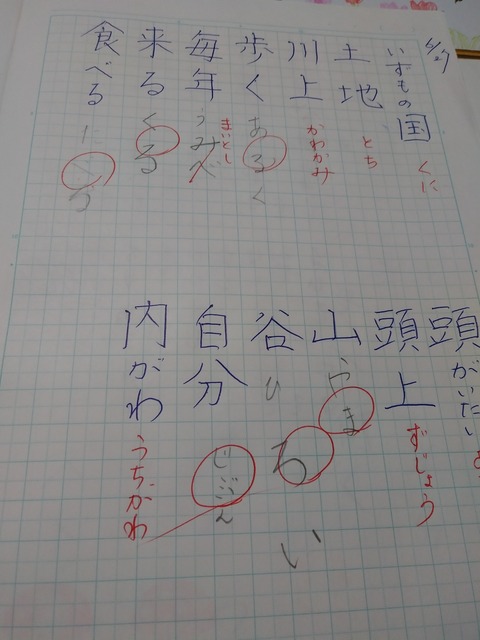 いずもの国
くに
土地
とち
川上
かわかみ
歩く
あるく
毎年
まいとし
うみべ
来る
くる
食べる
頭がいたい
頭上
ずじょう
山
やま
谷
自分
じぶん
内がわ
うちがわ